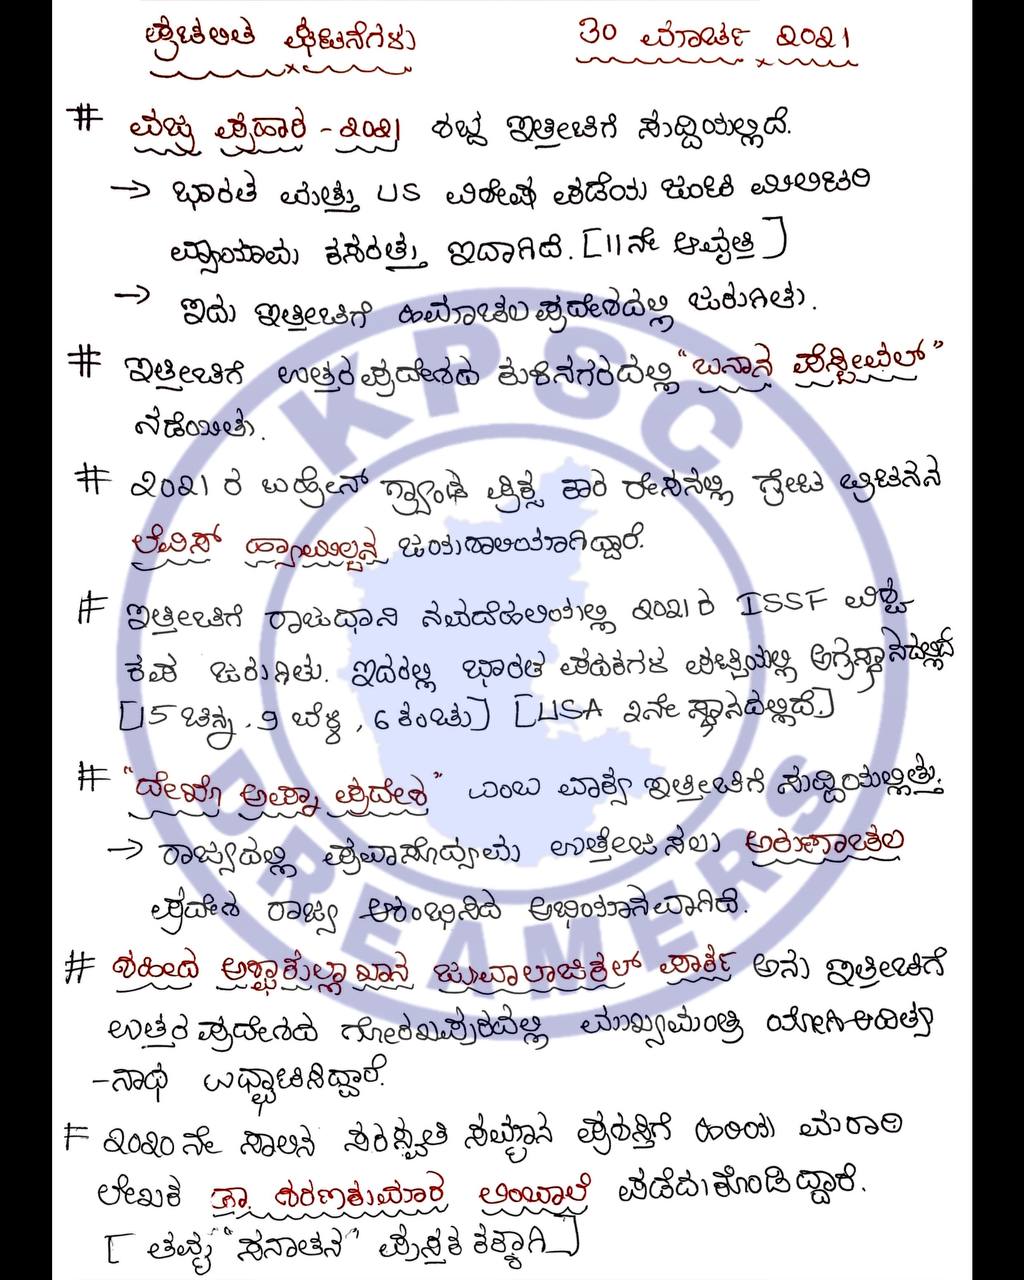 ಪ್ರಚಲಿತ ಘಟನೆಗಳು 30 ಮಾರ್ಚ ೨೦೨೧
# ವಜ್ರ ಪ್ರಹಾರ - ೨೦೨೧ ಶಬ್ದ ಇತ್ತೀಚಿಗೆ ಸುದ್ದಿಯಲ್ಲಿದೆ.
→ ಭಾರತ ಮತ್ತು US ವಿಶೇಷ ಪಡೆಯ ಜಂಟಿ ಮಿಲಿಟರಿ
ವ್ಯಾಯಾಮ ಕಸರತ್ತು ಇದಾಗಿದೆ. [11ನೇ ಆವೃತ್ತಿ]
→ ಇದು ಇತ್ತೀಚಿಗೆ ಹಿಮಾಚಲ ಪ್ರದೇಶದಲ್ಲಿ ಜರುಗಿತು.
# ಇತ್ತೀಚಿಗೆ ಉತ್ತರ ಪ್ರದೇಶದ ಕುಶಿನಗರದಲ್ಲಿ "ಬನಾನ ಫೆಸ್ಟೀವಲ್"
ನಡೆಯಿತು.
# ೨೦೨೧ ರ ಬಹ್ರೇನ್ ಗ್ರ್ಯಾಂಡ ಪ್ರಿಕ್ಸ ಕಾರ ರೇಸನಲ್ಲಿ ಗ್ರೇಟ ಬ್ರಿಟನನ
ಲೆವಿಸ್ ಹ್ಯಾಮಿಲ್ಟನ ಜಯಶಾಲಿಯಾಗಿದ್ದಾರೆ.
# ಇತ್ತೀಚಿಗೆ ರಾಜಧಾನಿ ನವದೆಹಲಿಯಲ್ಲಿ ೨೦೨೧ ರ ISSF ವಿಶ್ವ
ಕಪ ಜರುಗಿತು. ಇದರಲ್ಲಿ ಭಾರತ ಪದಕಗಳ ಪಟ್ಟಿಯಲ್ಲಿ ಅಗ್ರಸ್ಥಾನದಲ್ಲಿದೆ
[15 ಚಿನ್ನ, 9 ಬೆಳ್ಳಿ, 6 ಕಂಚು] [USA ೨ನೇ ಸ್ಥಾನದಲ್ಲಿದೆ.]
# "ದೇಖೋ ಅಪ್ನಾ ಪ್ರದೇಶ" ಎಂಬ ವಾಕ್ಯ ಇತ್ತೀಚಿಗೆ ಸುದ್ದಿಯಲ್ಲಿತ್ತು.
→ ರಾಜ್ಯದಲ್ಲಿ ಪ್ರವಾಸೋದ್ಯಮ ಉತ್ತೇಜಿಸಲು ಅರುಣಾಚಲ
ಪ್ರದೇಶ ರಾಜ್ಯ ಆರಂಭಿಸಿದ ಅಭಿಯಾನವಾಗಿದೆ.
# ಶಹೀದ ಅಶ್ಫಾಕುಲ್ಲಾ ಖಾನ ಜುವಾಲಾಜಿಕಲ್ ಪಾರ್ಕ ಅನು ಇತ್ತೀಚಿಗೆ
ಉತ್ತರ ಪ್ರದೇಶದ ಗೋರಖಪುರದಲ್ಲಿ ಮುಖ್ಯಮಂತ್ರಿ ಯೋಗಿ ಆದಿತ್ಯ
-ನಾಥ ಉದ್ಘಾಟಿಸಿದ್ದಾರೆ.
# ೨೦೨೦ ನೇ ಸಾಲಿನ ಸರಸ್ವತಿ ಸಮ್ಮಾನ ಪ್ರಶಸ್ತಿಗೆ ಹಿರಿಯ ಮರಾಠಿ
ಲೇಖಕ ಡಾ ಶರಣಕುಮಾರ ಲಿಂಬಾಳೆ ಪಡೆದುಕೊಂಡಿದ್ದಾರೆ.
[ತಮ್ಮ "ಸನಾತನ" ಪುಸ್ತಕಕ್ಕಾಗಿ]
KPSC
DREAMERS